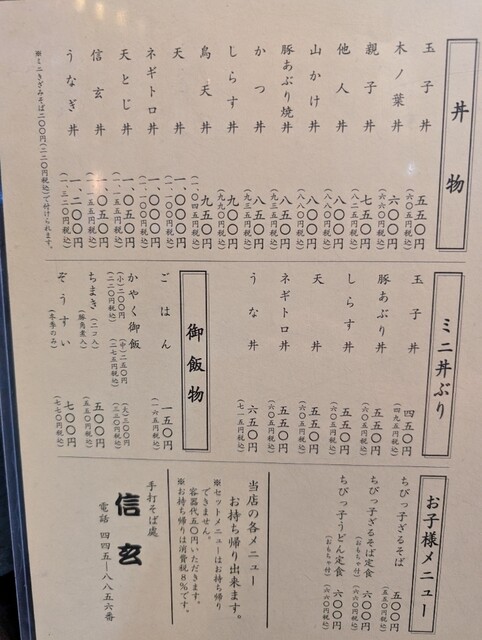 丼物
玉子丼 五五〇円
(六〇五円税込)
木ノ葉丼 六〇〇円
(六六〇円税込)
親子丼 七五〇円
(八二五円税込)
他人丼 八〇〇円
(八八〇円税込)
山かけ丼 八〇〇円
(八八〇円税込)
豚あぶり焼丼 八五〇円
(九三五円税込)
かつ丼 八五〇円
(九三五円税込)
しらす丼 九〇〇円
(九九〇円税込)
鳥天丼 九五〇円
(一、〇四五円税込)
天丼 一、〇〇〇円
(一、一〇〇円税込)
ネギトロ丼 一、〇〇〇円
(一、一〇〇円税込)
天とじ丼 一、〇五〇円
(一、一五五円税込)
信玄丼 一、〇五〇円
(一、一五五円税込)
うなぎ丼 一、二〇〇円
(一、三二〇円税込)
※ミニきざみそば二〇〇円(二二〇円税込)で付けられます。
ミニ丼ぶり
玉子丼 四五〇円
(四九五円税込)
豚あぶり丼 五五〇円
(六〇五円税込)
しらす丼 五五〇円
(六〇五円税込)
天丼 五五〇円
(六〇五円税込)
ネギトロ丼 五五〇円
(六〇五円税込)
うな丼 六五〇円
(七一五円税込)
御飯物
ごはん 一五〇円
(一六五円税込)
かやく御飯
(小)二〇〇円 (中)二五〇円 (大)三〇〇円
(二二〇円税込) (二七五円税込) (三三〇円税込)
ちまき(二コ入) 五〇〇円
(豚角煮入) (五五〇円税込)
ぞうすい 七〇〇円
(冬季のみ) (七七〇円税込)
お子様メニュー
ちびっ子ざるそば 五〇〇円
(五五〇円税込)
ちびっ子ざるそば定食 六〇〇円
(おもちゃ付) (六六〇円税込)
ちびっ子うどん定食 六〇〇円
(おもちゃ付) (六六〇円税込)
当店の各メニュー
お持ち帰り出来ます。
※セットメニューはお持ち帰り
できません。
容器代五〇円いただきます。
※お持ち帰りは消費税8%です。
手打そば處
信玄
電話 四四五―八八五六番